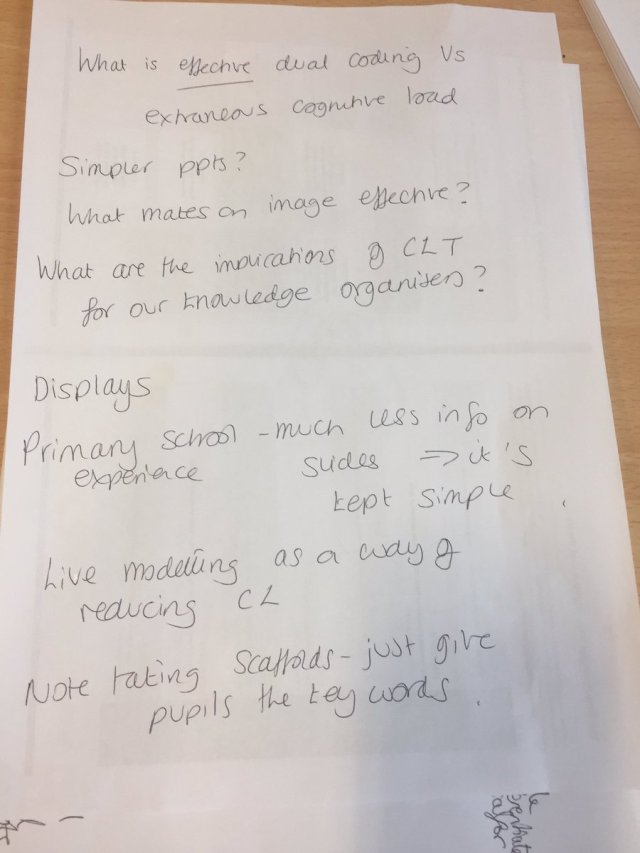 What is effective dual coding Vs
extraneous cognitive load
Simpler ppts?
What makes an image effective?
What are the implications of CLT
for our knowledge organisers?
Displays
Primary school - much less info on
experience slides => it's
kept simple.
Live modelling as a way of
reducing CL
Note taking scaffolds - just give
pupils the key words.